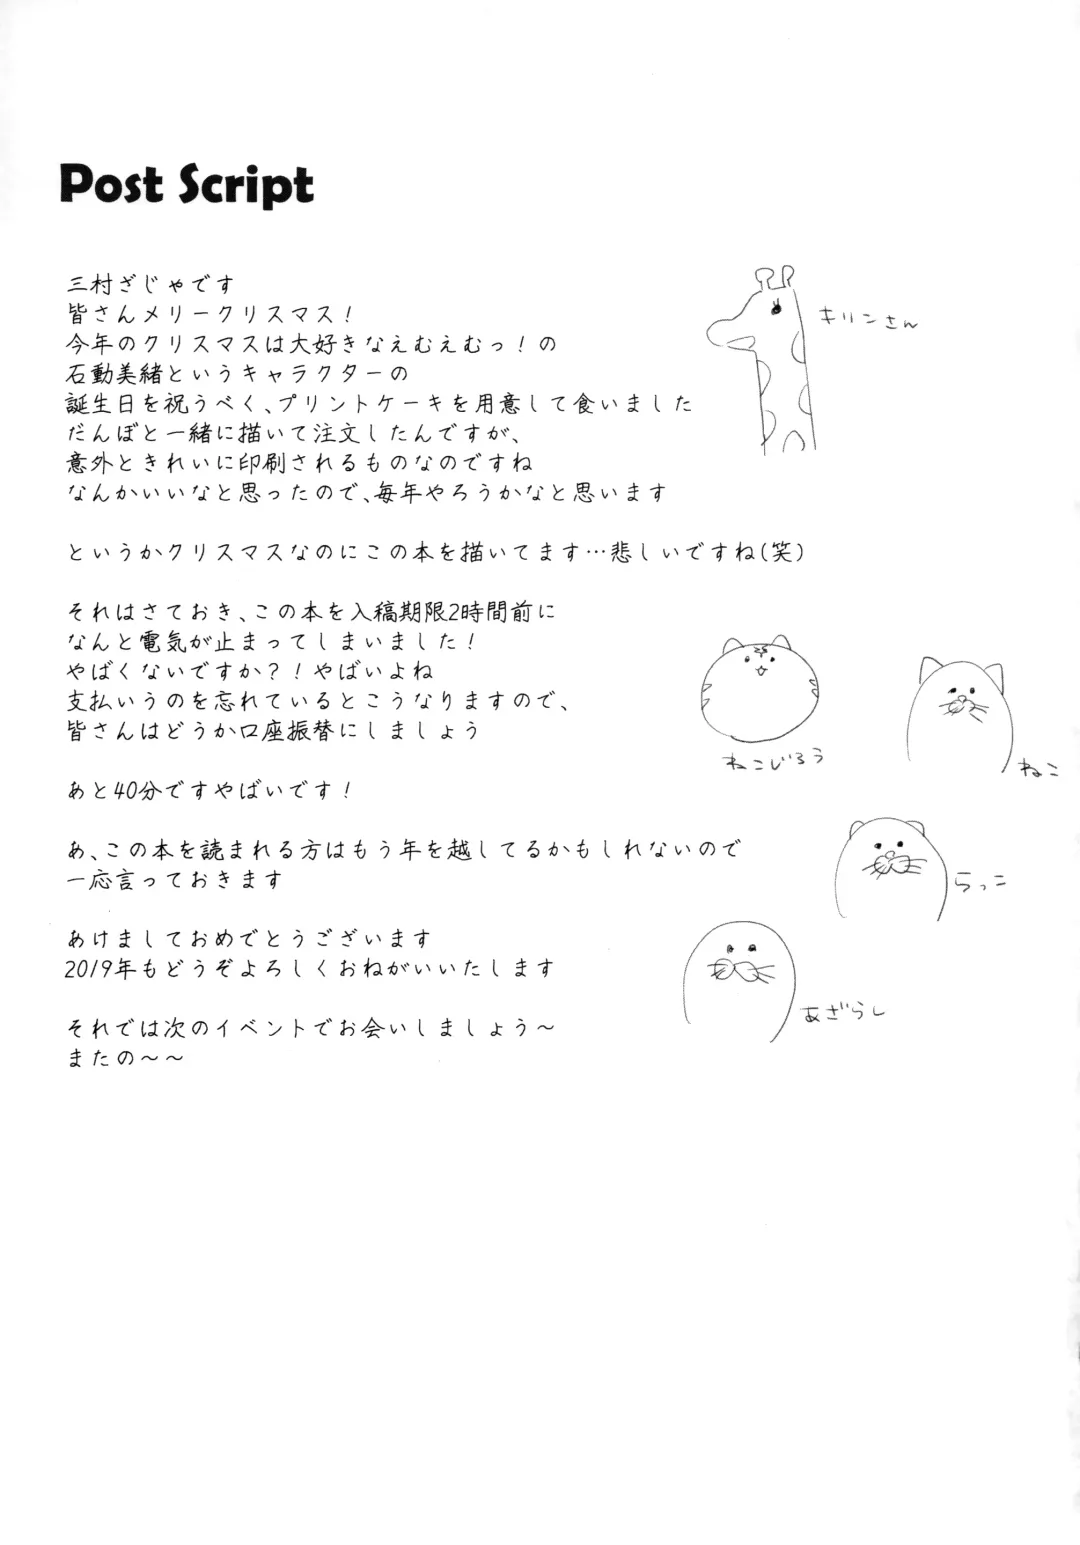 Post Script
三村ざじゃです
皆さんメリークリスマス!
キリンさん
今年のクリスマスは大好きなえむえむっ!の
石動美緒というキャラクターの
誕生日を祝うべく、プリントケーキを用意して食いました
だんぼと一緒に描いて注文したんですが、
意外ときれいに印刷されるものなのですね
なんかいいなと思ったので、毎年やろうかなと思います
というかクリスマスなのにこの本を描いてます…悲しいですね(笑)
それはさておき、この本を入稿期限2時間前に
なんと電気が止まってしまいました!
やばくないですか?!やばいよね
支払いうのを忘れているとこうなりますので、
皆さんはどうか口座振替にしましょう
ねこじろう
ねこ
あと40分ですやばいです!
あ、この本を読まれる方はもう年を越してるかもしれないので
一応言っておきます
らっこ
あけましておめでとうございます
2019年もどうぞよろしくおねがいいたします
あざらし
それでは次のイベントでお会いしましょう～
またの～～